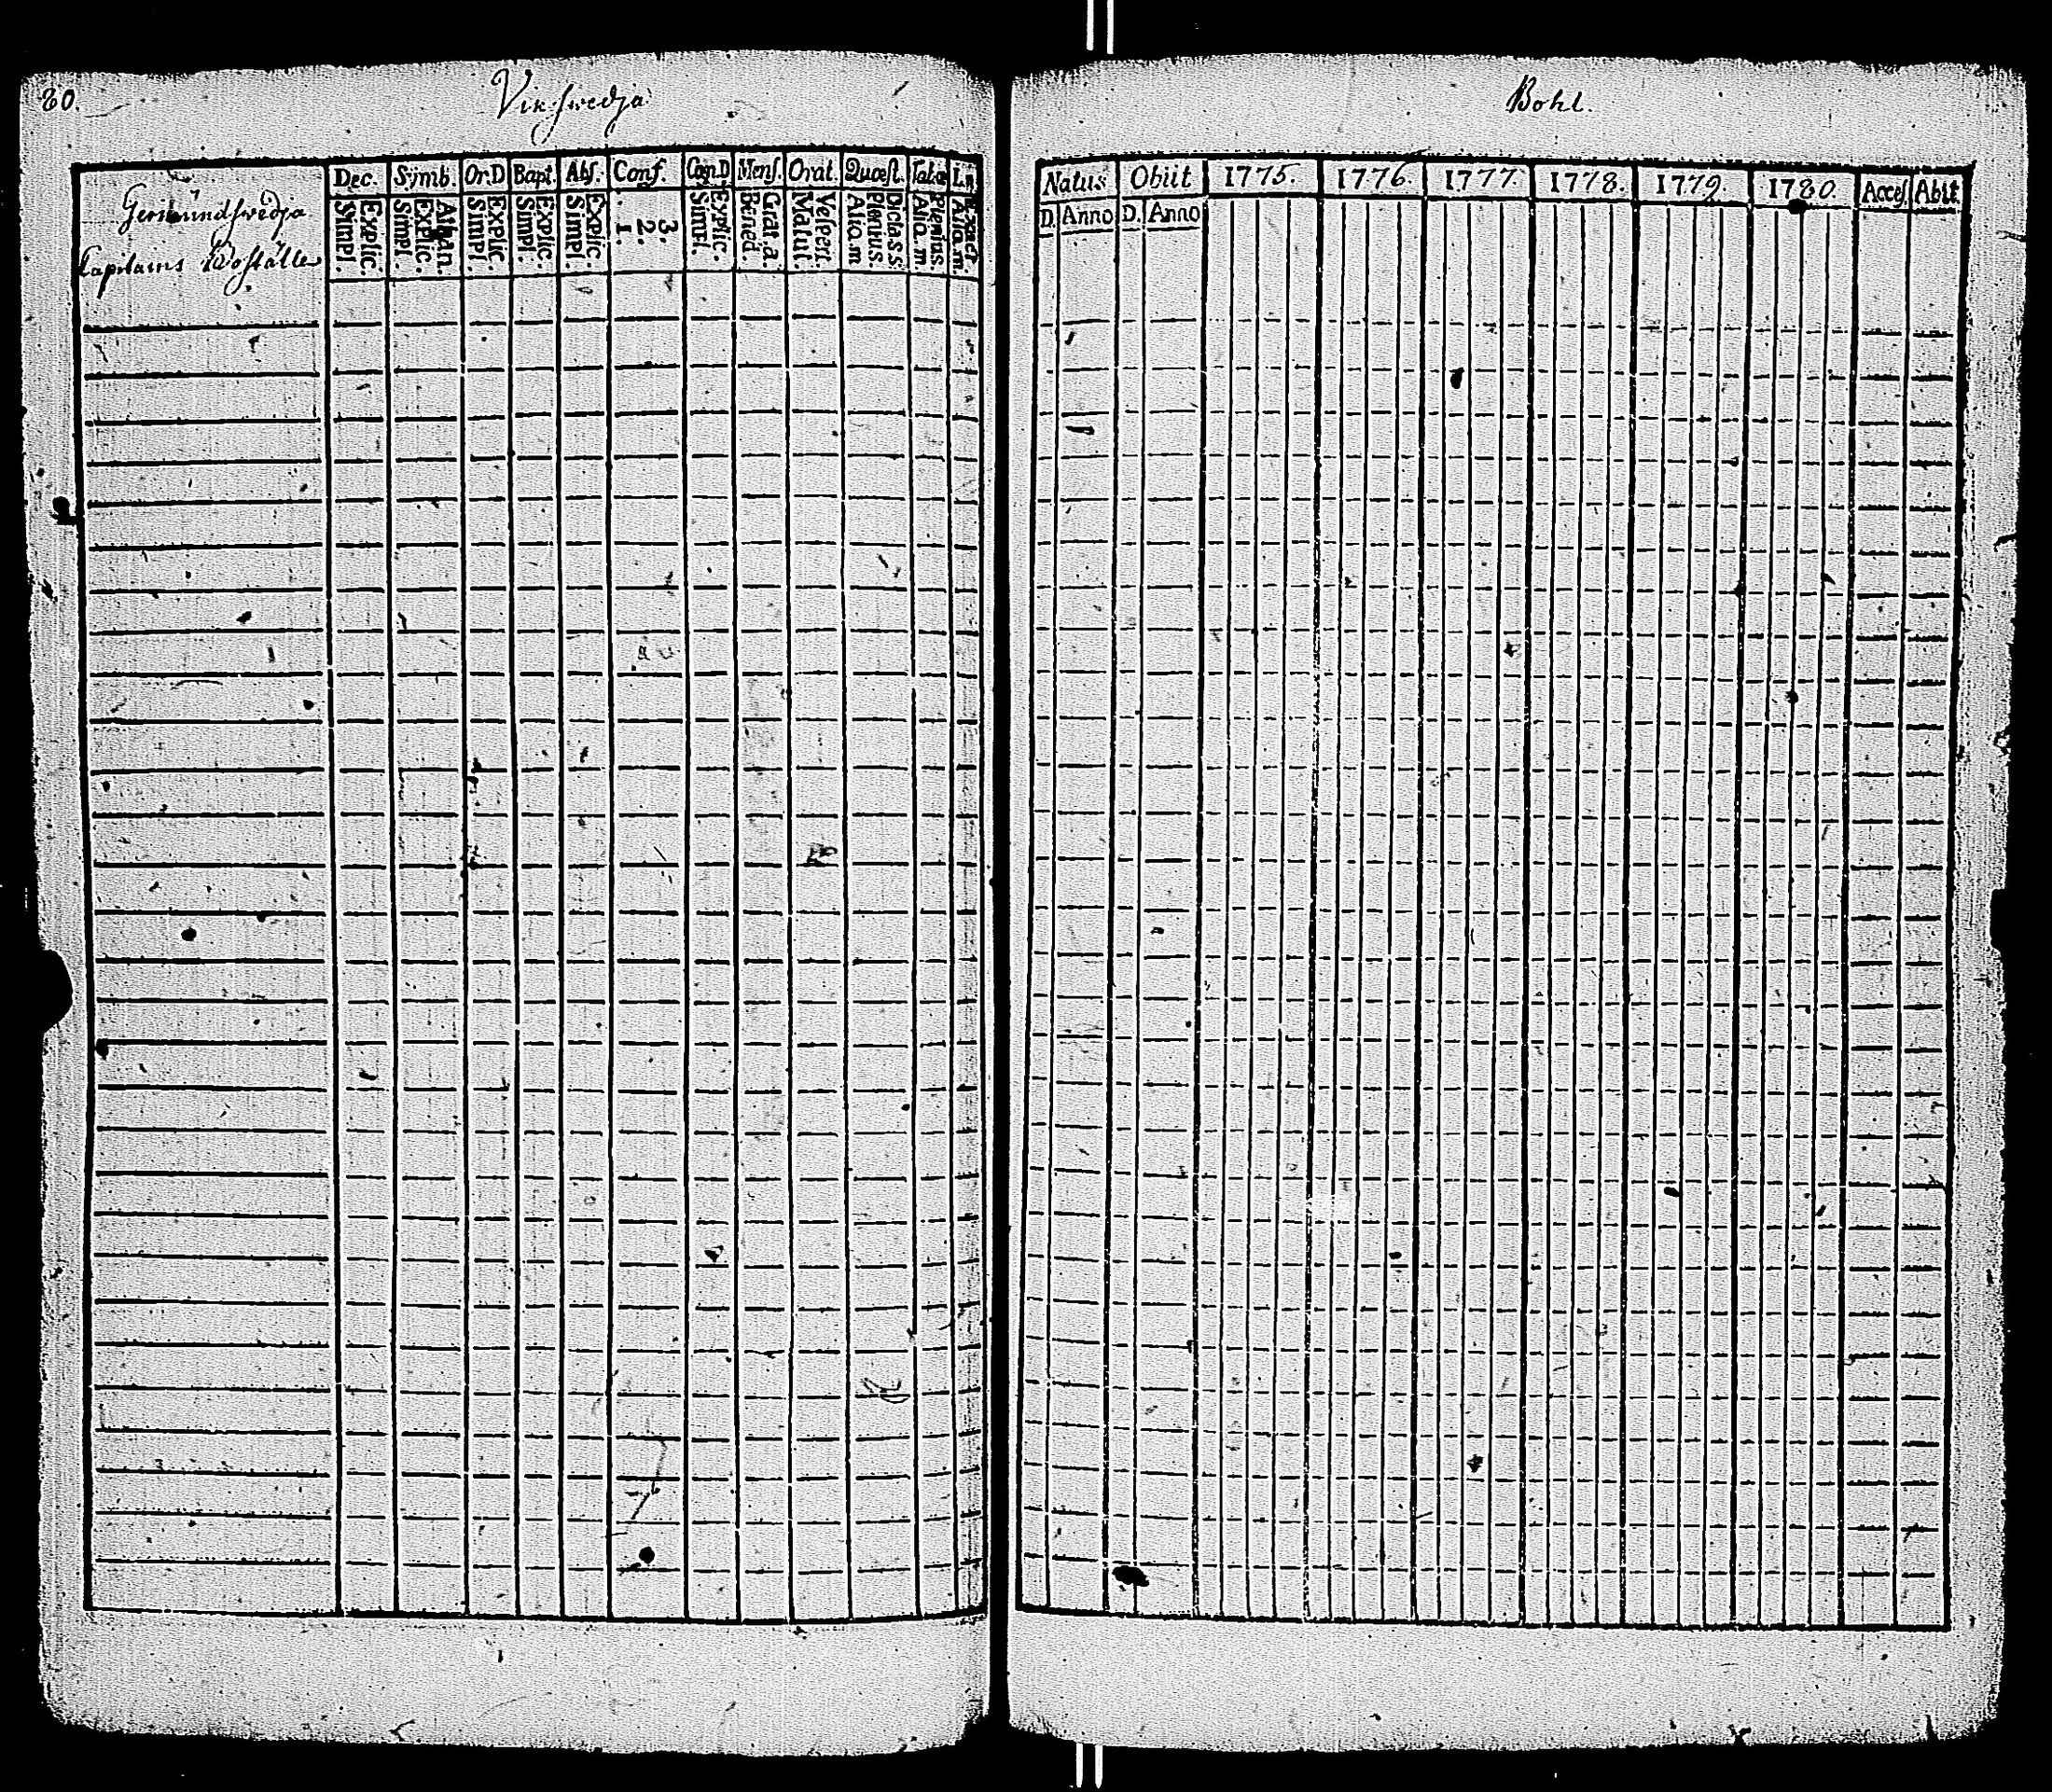 80.
Vik swedja
Bohl.
Germundswedja
Capitains Boställe
Dec. Symb. Or.D Bapt. Abs. Conf. Cœn.D Mens. Orat. Quœst. Tabœ
Simpl. Explic. Simpl. Explic. Athan. Simpl. Explic. Simpl. Explic. Simpl. Explic. 1. 2. 3. Simpl. Explic. Bened. Grat.a. Matut. Vespert. Aliq.m Plenius. Dicta S.S. Aliq.m Plenius. Aliq.m.
Natus Obiit 1775. 1776. 1777. 1778. 1779. 1780. Acces Abiit
D. Anno D. Anno